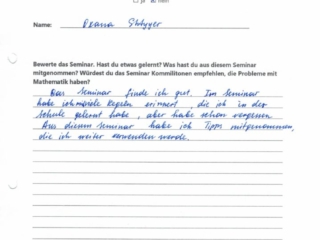 ja nein
Name:
Bewerte das Seminar. Hast du etwas gelernt? Was hast du aus diesem Seminar
mitgenommen? Würdest du das Seminar Kommilitonen empfehlen, die Probleme mit
Mathematik haben?
Das Seminar finde ich gut. Im Seminar
habe ich viele Regeln erinnert, die ich in der
Schule gelernt habe, aber habe schon vergessen.
Aus diesem Seminar habe ich Tipps mitgenommen,
die ich weiter verwenden werde.